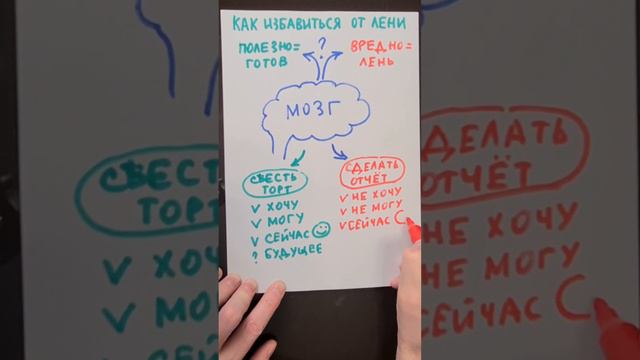 КАК ИЗБАВИТЬСЯ ОТ ЛЕНИ
ПОЛЕЗНО=
ГОТОВ
?
ВРЕДНО=
ЛЕНЬ
МОЗГ
СЪЕСТЬ
ТОРТ
✓ ХОЧУ
✓ МОГУ
✓ СЕЙЧАС
? БУДУЩЕЕ
СДЕЛАТЬ
ОТЧЁТ
✓ НЕ ХОЧУ
✓ НЕ МОГУ
✓ СЕЙЧАС